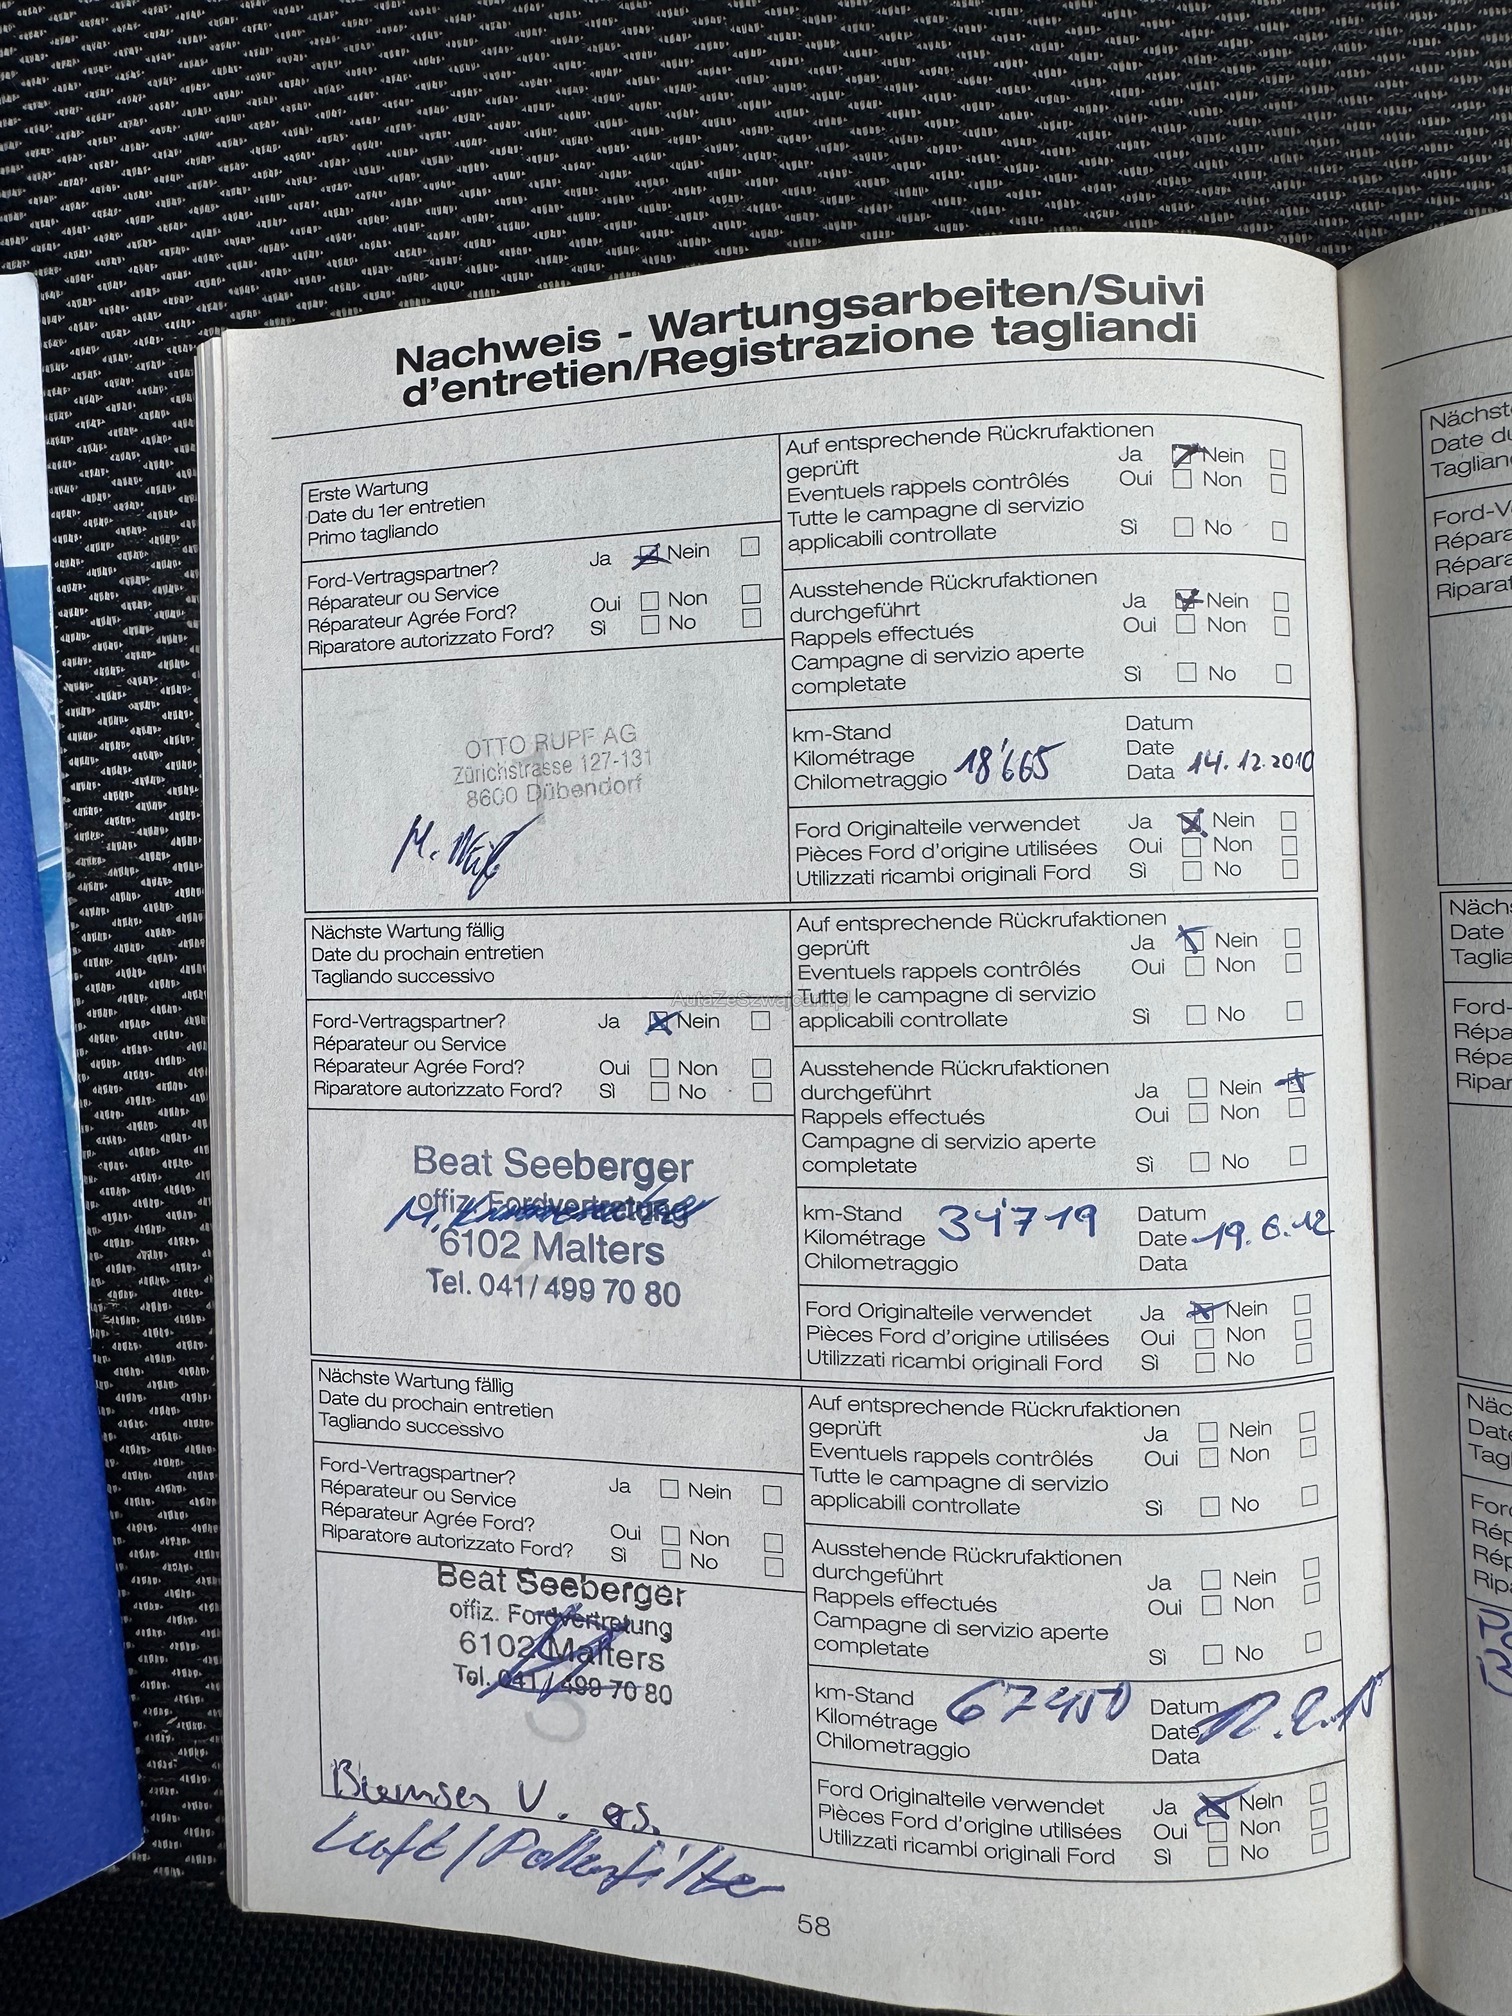 Nachweis - Wartungsarbeiten/Suivi
d'entretien/Registrazione tagliandi
Erste Wartung
Date du 1er entretien
Primo tagliando
Ford-Vertragspartner?
Réparateur ou Service
Réparateur Agrée Ford?
Riparatore autorizzato Ford?
Ja Nein
Oui Non
Sì No
OTTO RUPF AG
Zürichstrasse 127-131
8600 Dübendorf
Auf entsprechende Rückrufaktionen
geprüft
Eventuels rappels contrôlés
Tutte le campagne di servizio
applicabili controllate
Ja Nein
Oui Non
Sì No
Ausstehende Rückrufaktionen
durchgeführt
Rappels effectués
Campagne di servizio aperte
completate
Ja Nein
Oui Non
Sì No
km-Stand
Kilométrage
Chilometraggio 18'665
Datum
Date
Data 14.12.2010
Ford Originalteile verwendet Ja Nein
Pièces Ford d'origine utilisées Oui Non
Utilizzati ricambi originali Ford Sì No
Nächste Wartung fällig
Date du prochain entretien
Tagliando successivo
Ford-Vertragspartner?
Réparateur ou Service
Réparateur Agrée Ford?
Riparatore autorizzato Ford?
Ja Nein
Oui Non
Sì No
Beat Seeberger
offiz. Fordvertretung
6102 Malters
Tel. 041/499 70 80
Auf entsprechende Rückrufaktionen
geprüft
Eventuels rappels contrôlés
Tutte le campagne di servizio
applicabili controllate
Ja Nein
Oui Non
Sì No
AutaZeSzwajcarii.pl
Ausstehende Rückrufaktionen
durchgeführt
Rappels effectués
Campagne di servizio aperte
completate
Ja Nein
Oui Non
Sì No
km-Stand
Kilométrage 34'719
Chilometraggio
Datum
Date 19.6.12
Data
Ford Originalteile verwendet Ja Nein
Pièces Ford d'origine utilisées Oui Non
Utilizzati ricambi originali Ford Sì No
Nächste Wartung fällig
Date du prochain entretien
Tagliando successivo
Ford-Vertragspartner?
Réparateur ou Service
Réparateur Agrée Ford?
Riparatore autorizzato Ford?
Ja Nein
Oui Non
Sì No
Beat Seeberger
offiz. Fordvertretung
6102 Malters
Tel. 041/499 70 80
3
Auf entsprechende Rückrufaktionen
geprüft
Eventuels rappels contrôlés
Tutte le campagne di servizio
applicabili controllate
Ja Nein
Oui Non
Sì No
Ausstehende Rückrufaktionen
durchgeführt
Rappels effectués
Campagne di servizio aperte
completate
Ja Nein
Oui Non
Sì No
km-Stand
Kilométrage 67450
Chilometraggio
Datum
Date 12.2.15
Data
Ford Originalteile verwendet Ja Nein
Pièces Ford d'origine utilisées Oui Non
Utilizzati ricambi originali Ford Sì No
Bremsen V. ers.
Luft/Pollenfilter
58